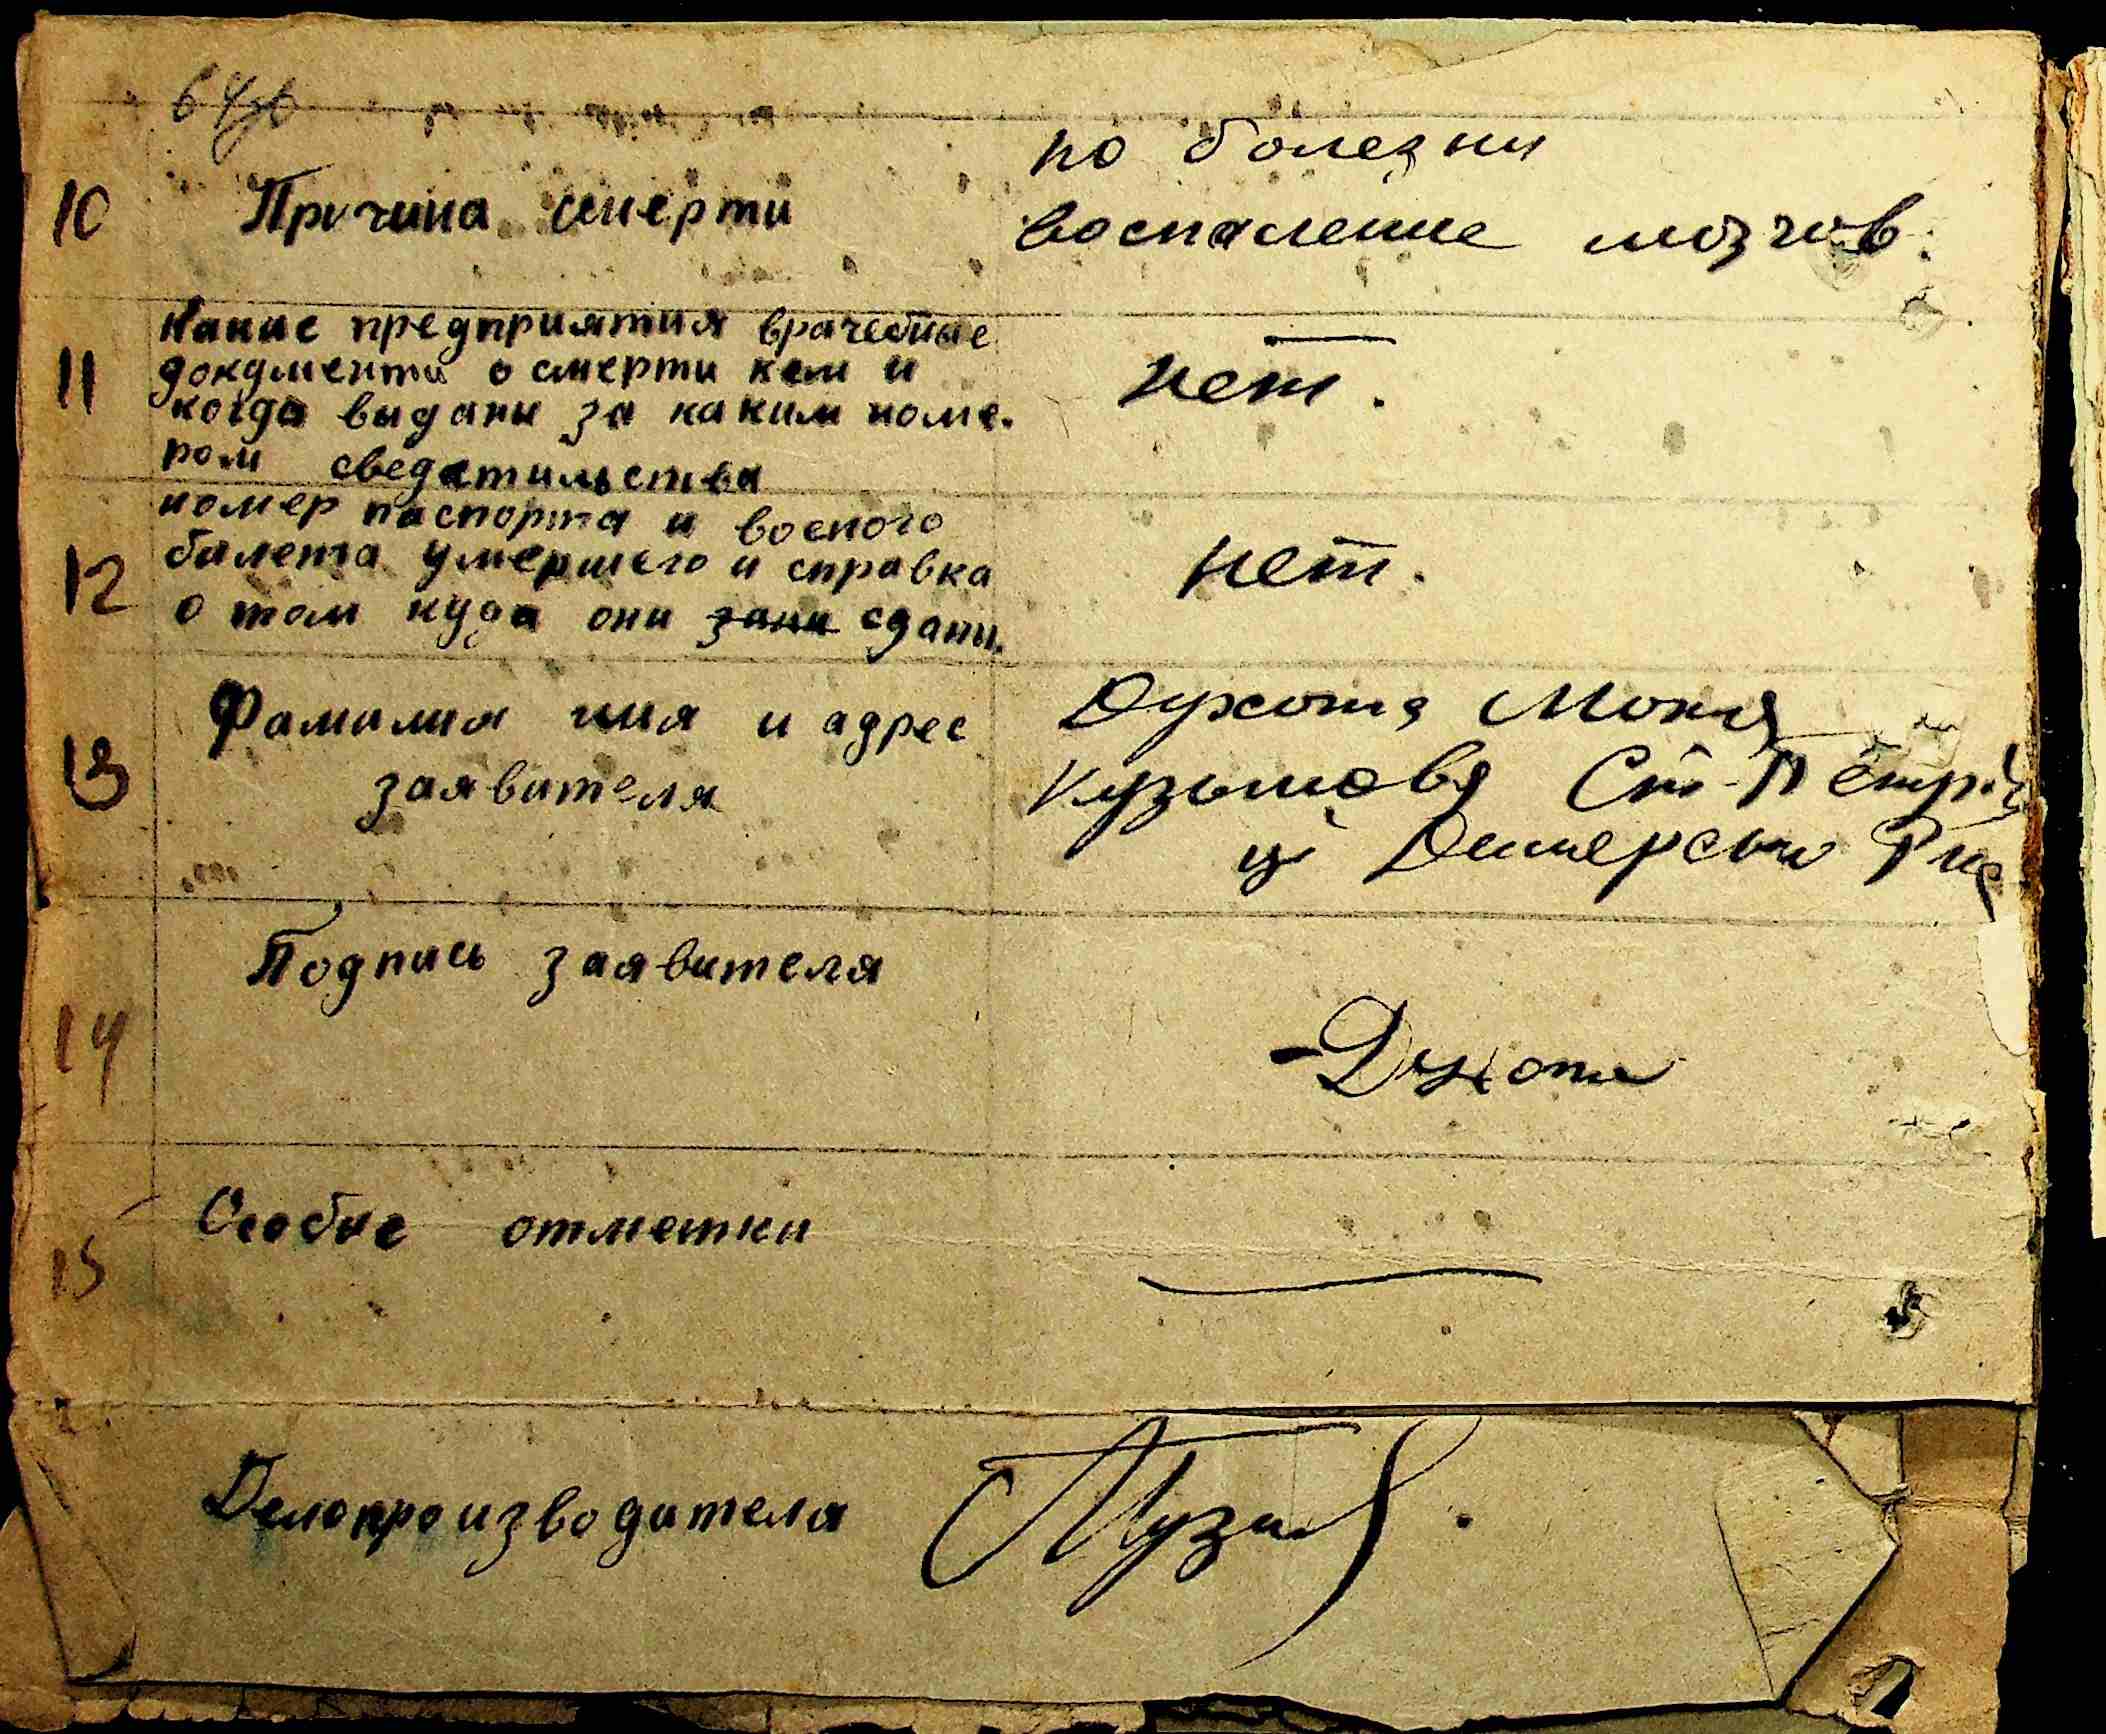 64об
10 Причина смерти
по болезни
воспаление мозгов.
11 Какие предприятия врачебные
документи о смерти кем и
когда выдани за каким номе-
ром сведатильства
нет.
12 номер паспорта и военого
билета умершего и справка
о том куда они зани сдани.
нет.
13 Фамилия имя и адрес
заявителя
Духота Мокия
Кузьмова Ст-Петри
ц Демерсью
14 Подпись заявителя
Духота
15 Особие отметки
Делопроизводителя